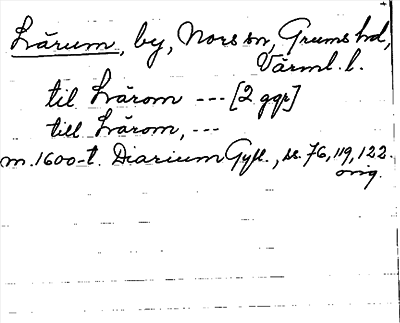 Lärum, by, Nors sn, Grums hd,
Värml. l.
til Lärom --- [2 ggr]
till Lärom, ---
m. 1600-t. Diarium Gyll., ss. 76, 119, 122.
orig.